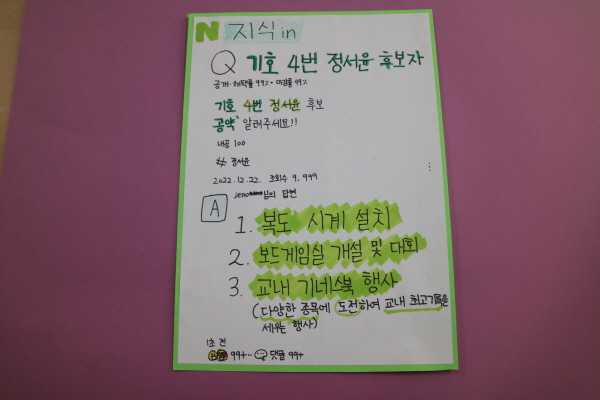 N 지식in
Q 기호 4번 정서윤 후보자
공개·채택률 99%·마감률 99%
기호 4번 정서윤 후보
공약 알려주세요!!
내공 100
# 정서윤
2022.12.22. 조회수 9,999
님의 답변
A
1. 복도 시계 설치
2. 보드게임실 개설 및 대회
3. 교내 기네스북 행사
(다양한 종목에 도전하여 교내 최고기록을
세우는 행사)
1초 전
99+ 댓글 99+